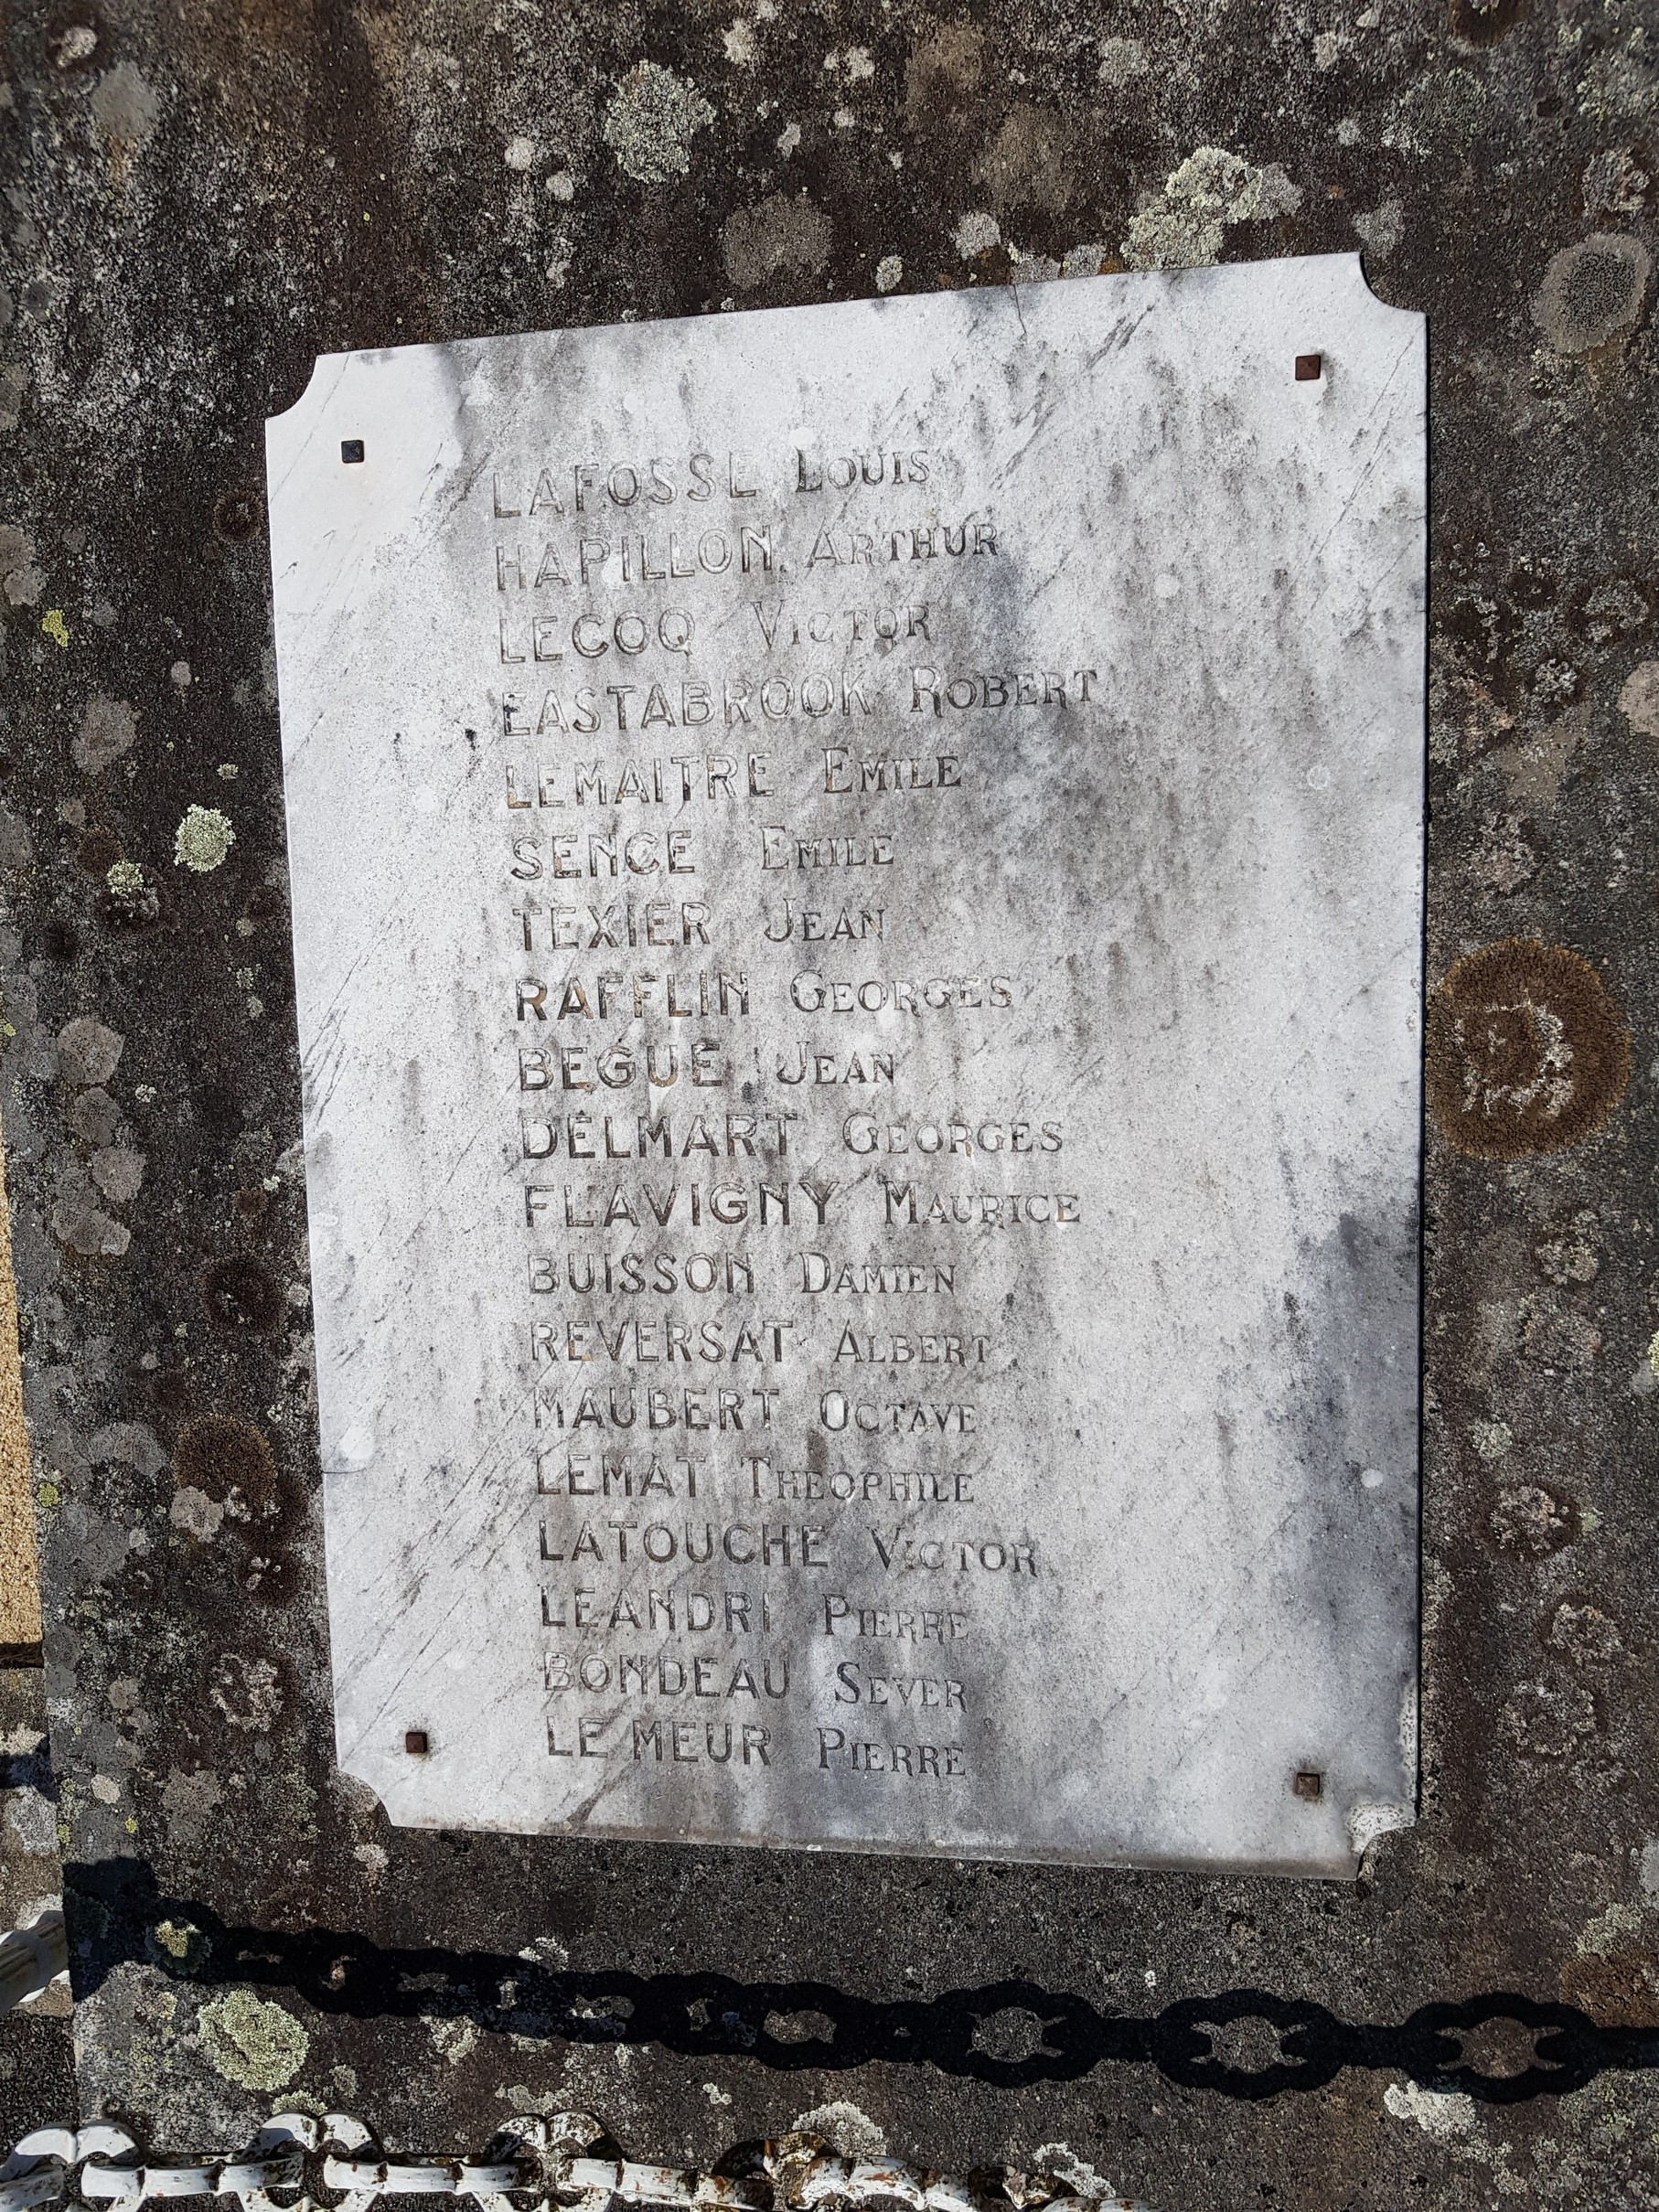 LAFOSSE LOUIS
HAPILLON ARTHUR
LECOQ VICTOR
EASTABROOK ROBERT
LEMAITRE EMILE
SENCE EMILE
TEXIER JEAN
RAFFLIN GEORGES
BEGUE JEAN
DELMART GEORGES
FLAVIGNY MAURICE
BUISSON DAMIEN
REVERSAT ALBERT
MAUBERT OCTAVE
LEMAT THEOPHILE
LATOUCHE VICTOR
LEANDRI PIERRE
BONDEAU SEVER
LE MEUR PIERRE